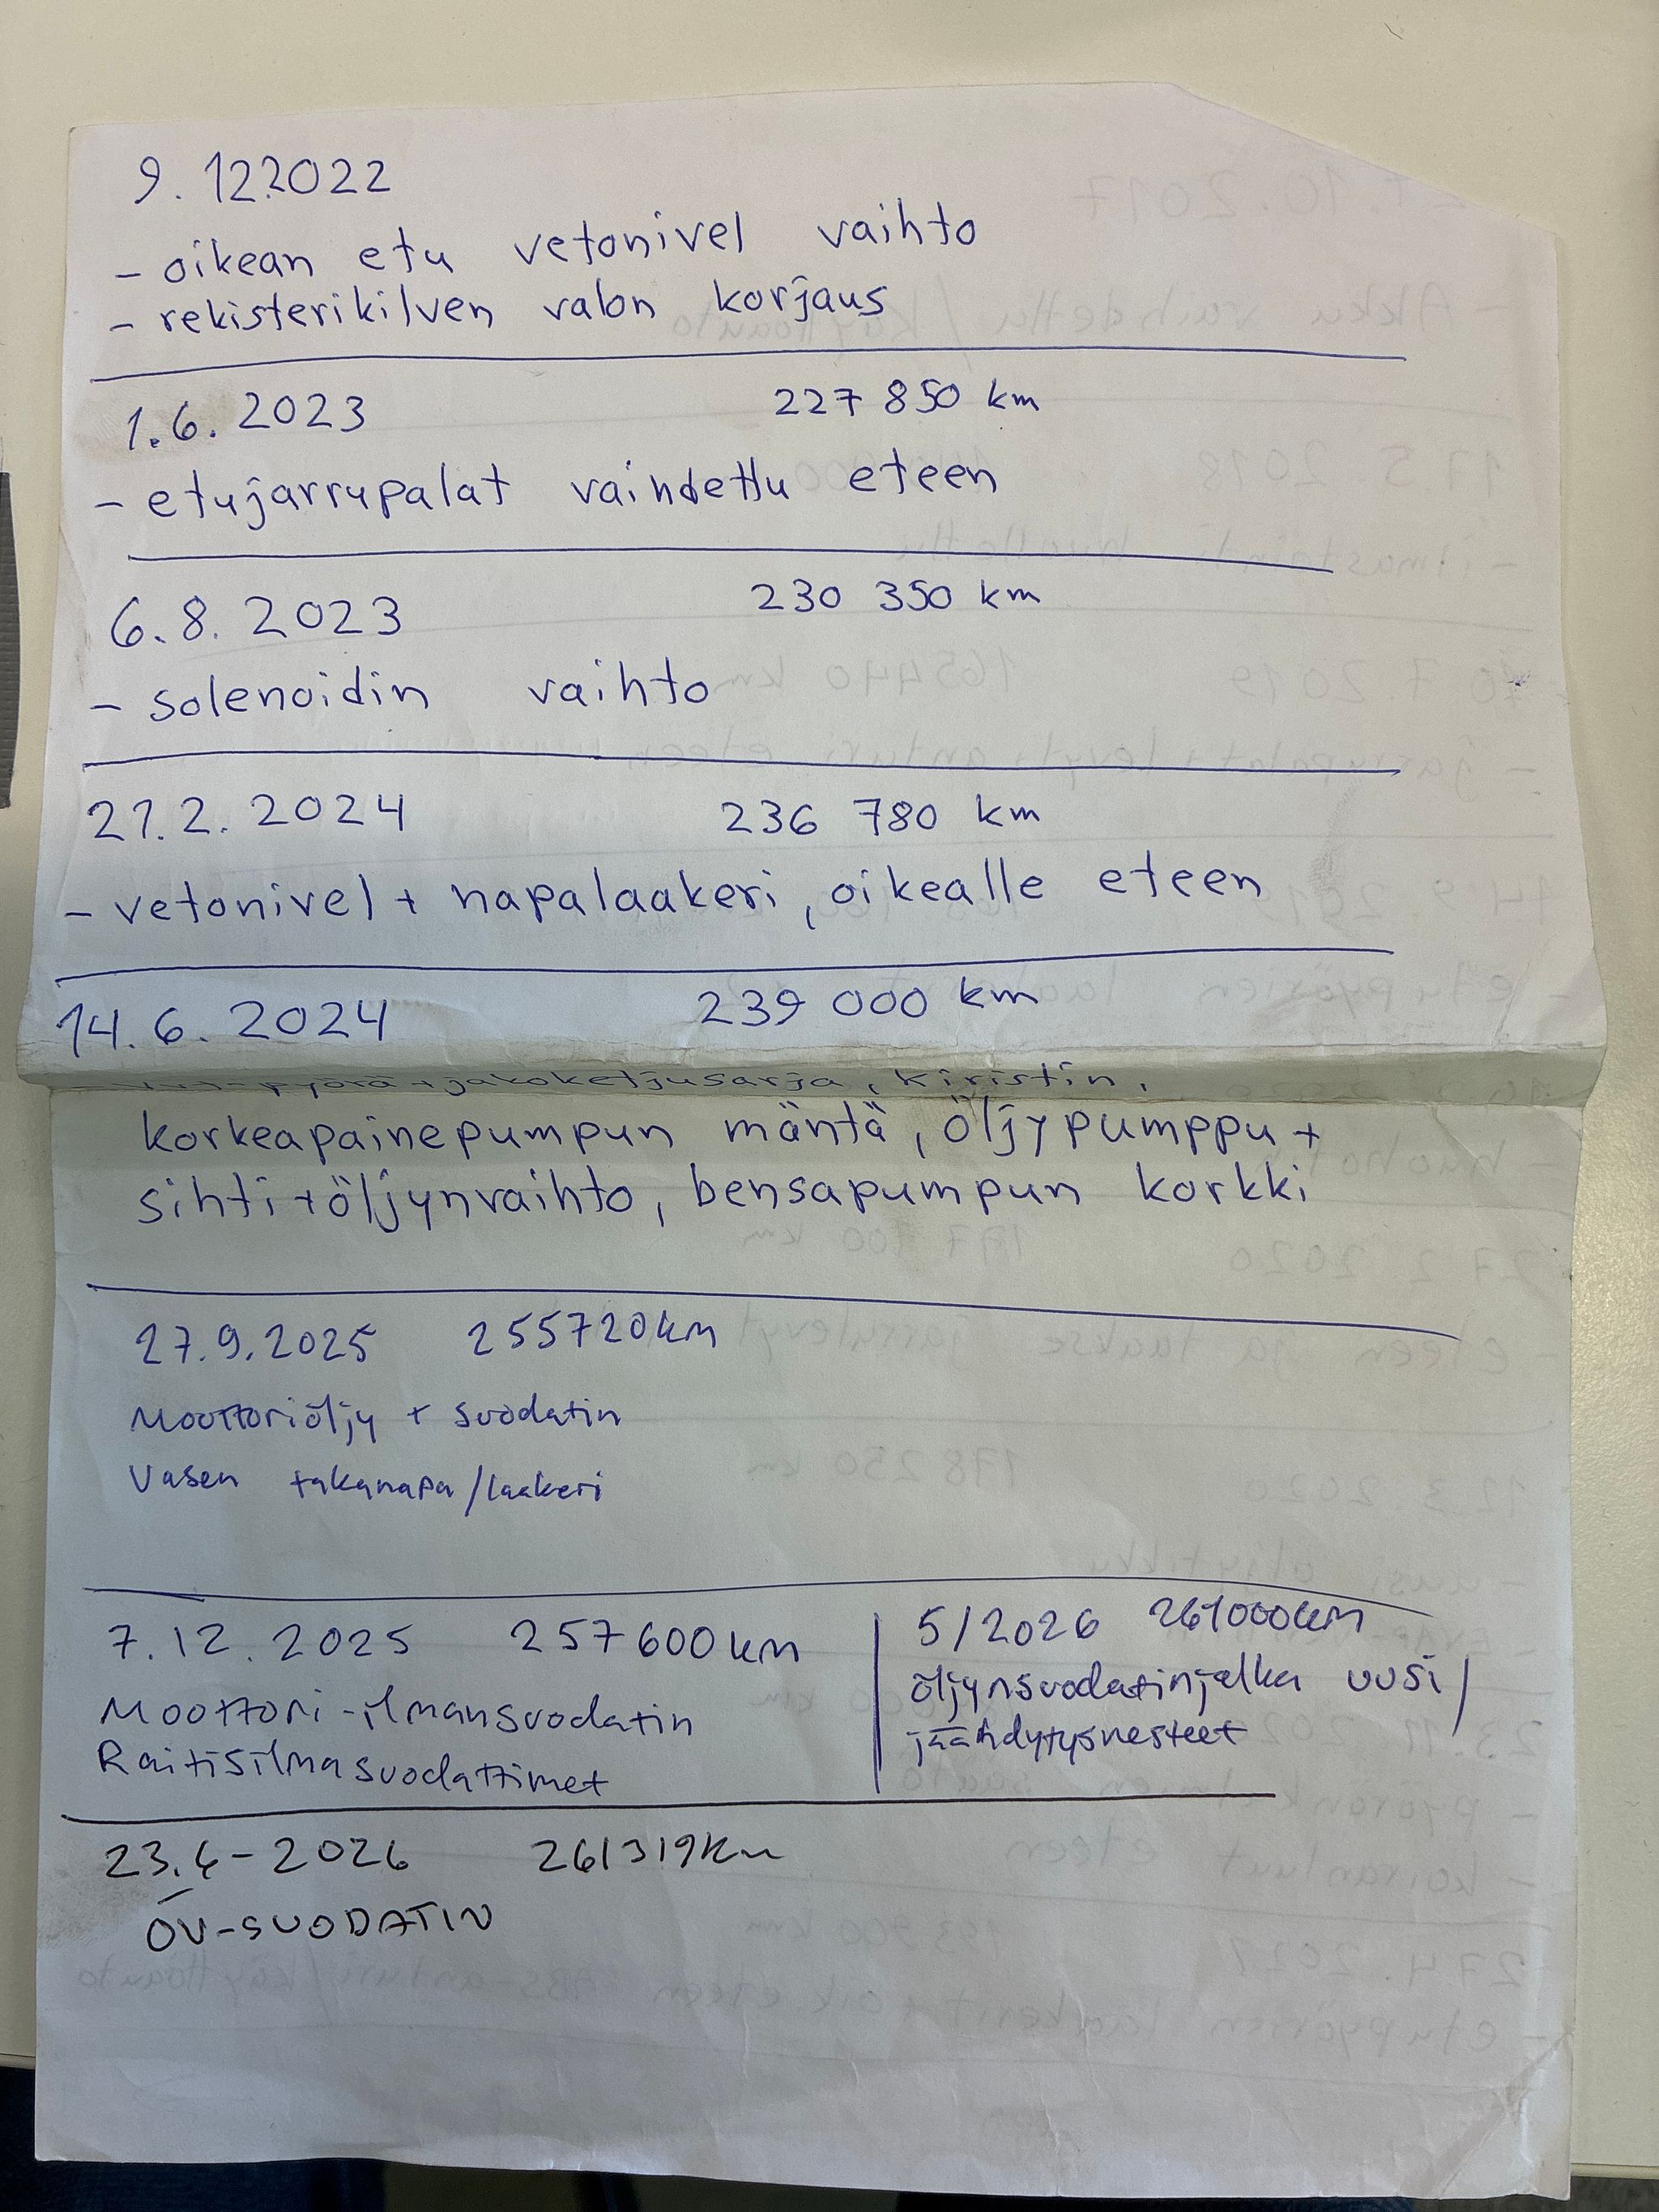 9.12.2022
- oikean etu vetonivel vaihto
- rekisterikilven valon korjaus
1.6.2023 227 850 km
- etujarrupalat vaihdettu eteen
6.8.2023 230 350 km
- solenoidin vaihto
21.2.2024 236 780 km
- vetonivel + napalaakeri, oikealle eteen
14.6.2024 239 000 km
pyörä + jakoketjusarja, kiristin,
korkeapainepumpun mäntä, öljypumppu +
sihti + öljynvaihto, bensapumpun korkki
27.9.2025 255720km
Moottoriöljy + suodatin
Vasen takanapa/laakeri
7.12.2025 257600km
Moottori-ilmansuodatin
Raitisilmasuodattimet
5/2026 261000km
öljynsuodatinjalka uusi/
jäähdytysnesteet
23.4-2026 261319km
ÖV-SUODATIN